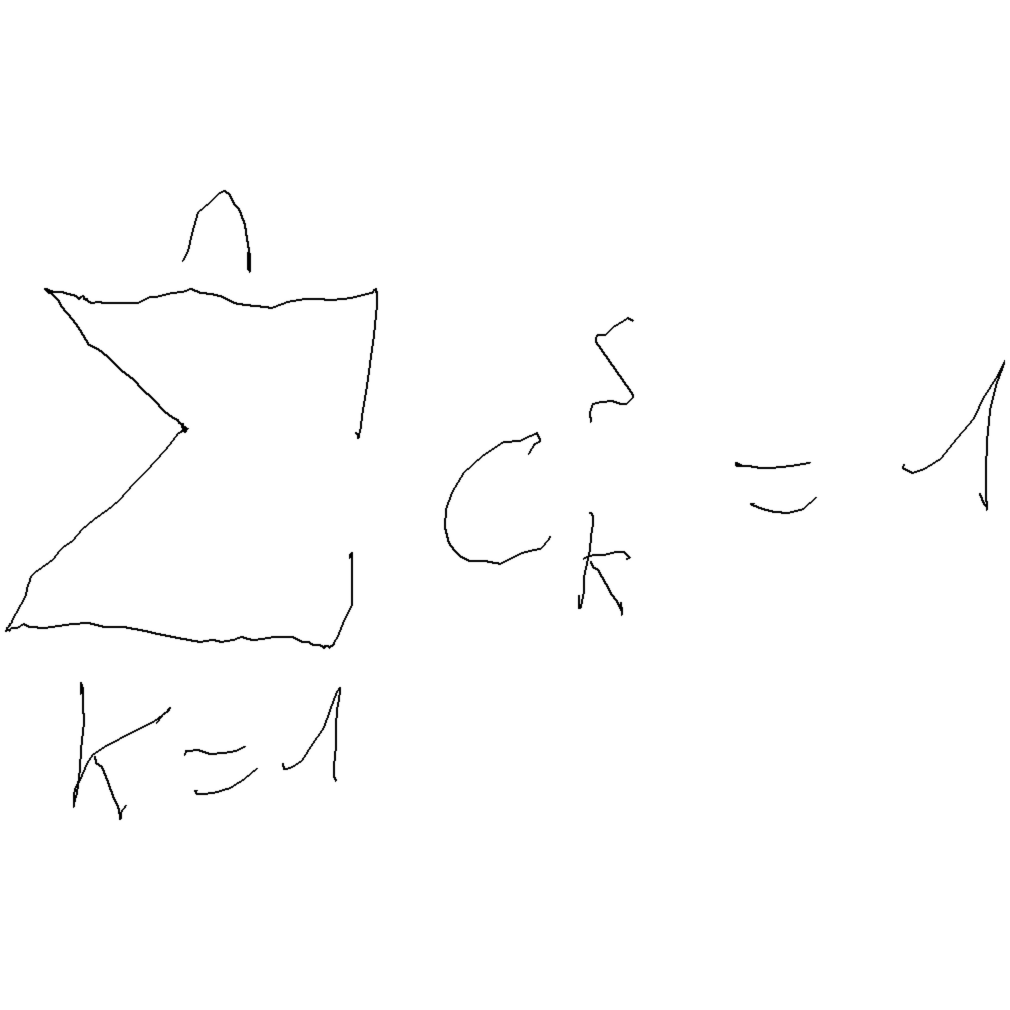 \sum_{k=1}^{n} C_{k}^{s} = 1